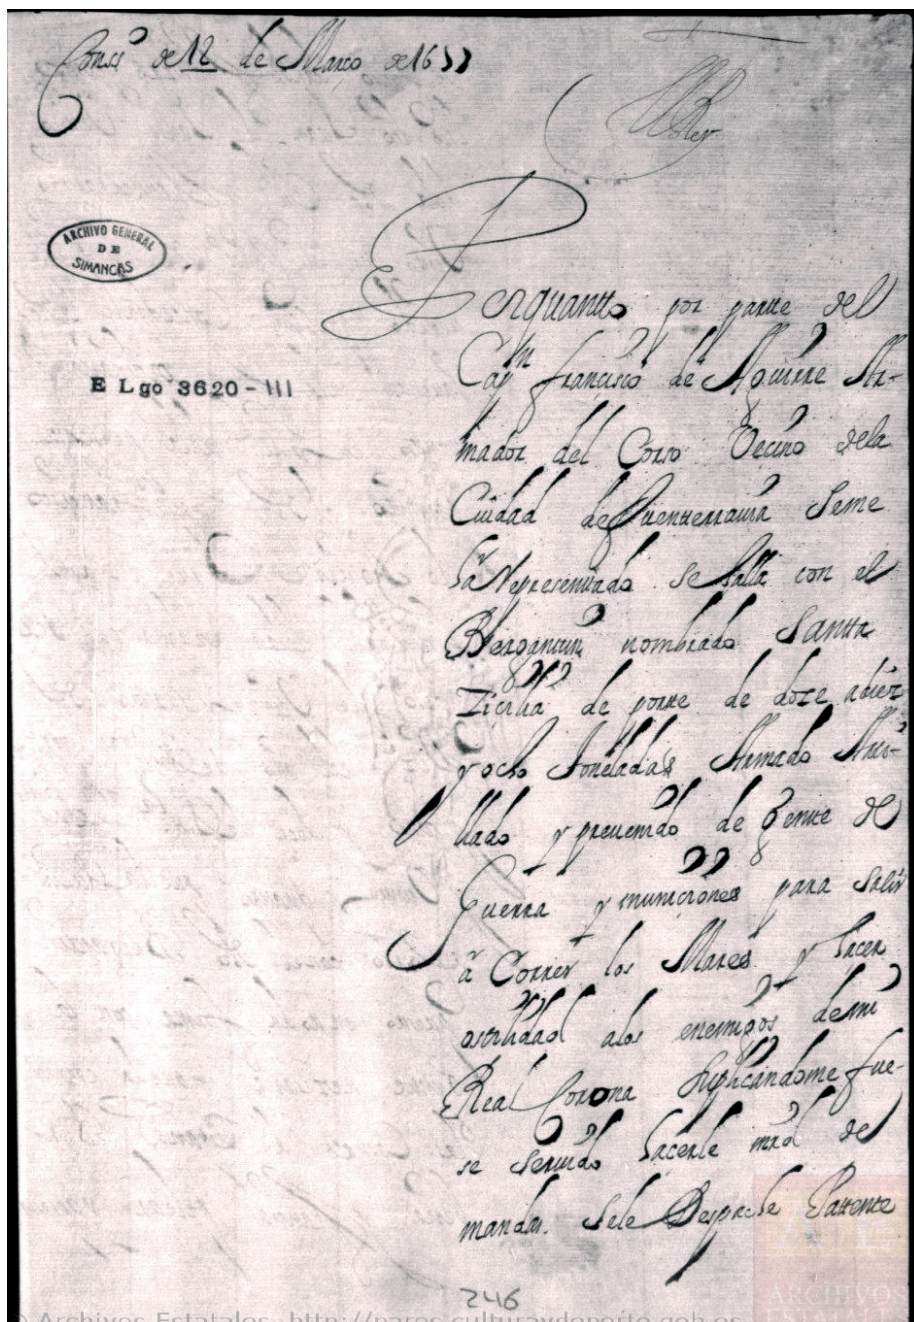 Conss.º de 12 de Março de 1677
ARCHIVO GENERAL
DE
SIMANCAS
E Lgo 3620-III
Porquantto por partte del
Capn francisco de Aguirre Ar-
mador del Corso Vecino dela
Ciudad de fuenterrauia seme
ha Representtado se halla con el
Bergantin nombrado Santta
Zicilia de portte de doze a diez
y ocho tondeladas Armado Arti-
llado y preuenido de Gentte de
Guerra y municiones para salir
a Correr los Mares y hacer
ostilidad alos enemigos demi
Real Corona suplicandome fue-
se seruido hacerle mrd de
mandar sele Despache Patente
246
© Archivos Estatales, http://pares.culturaydeporte.gob.es
ARCHIVOS
ESTATALES